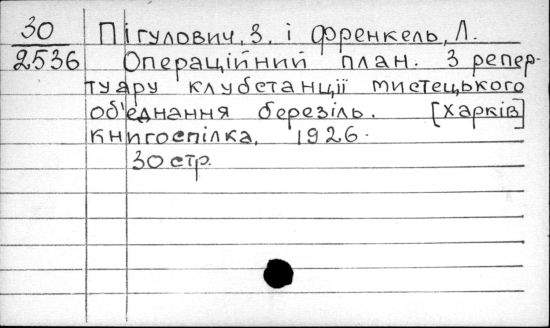 30 Пігулович, З. і Френкель, Л.
2536 Операційний план. З репер-
туару клубстанції мистецького
об'єднання березіль. [Харків]
Книгоспілка, 1926.
30 стр.